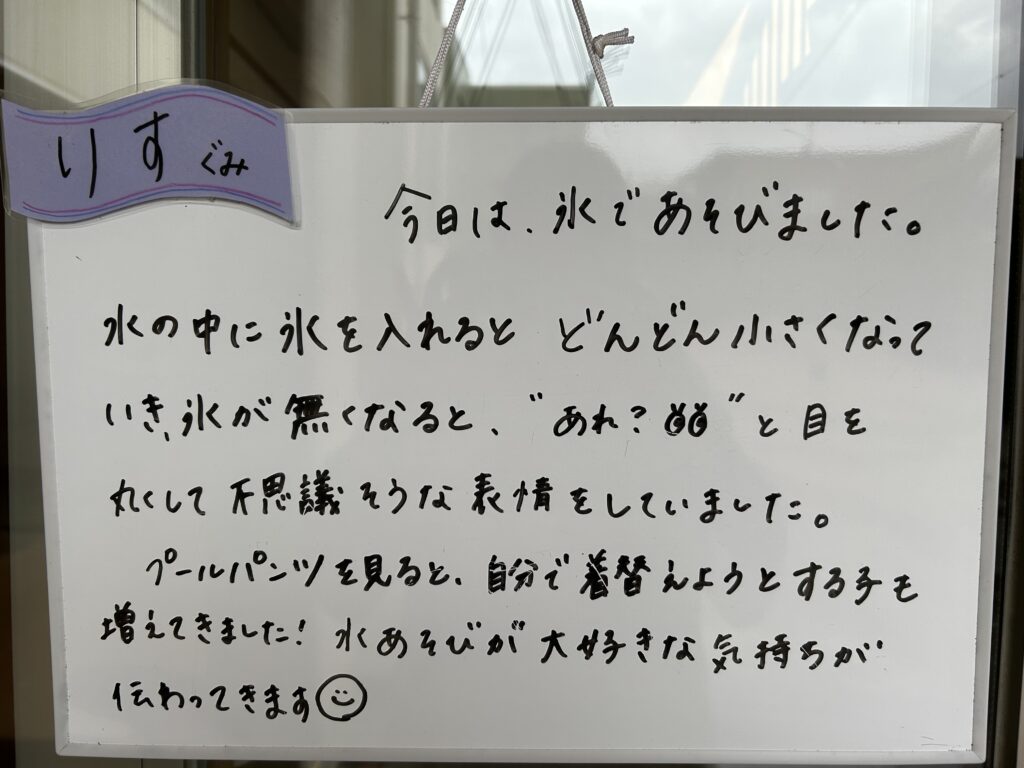 りすぐみ
今日は、氷であそびました。
水の中に氷を入れると どんどん小さくなって
いき、氷が無くなると、"あれ？👀"と目を
丸くして不思議そうな表情をしていました。
プールパンツを見ると、自分で着替えようとする子も
増えてきました！ 水あそびが大好きな気持ちが
伝わってきます☺